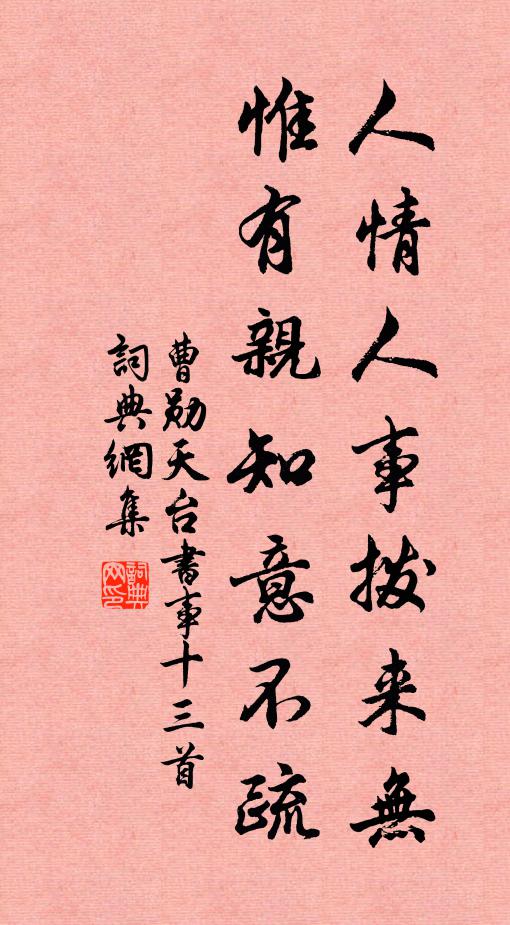 人情人事拨来無
惟有親知意不疏
曹勋天台書事十三首
詞典網集
詞典網印